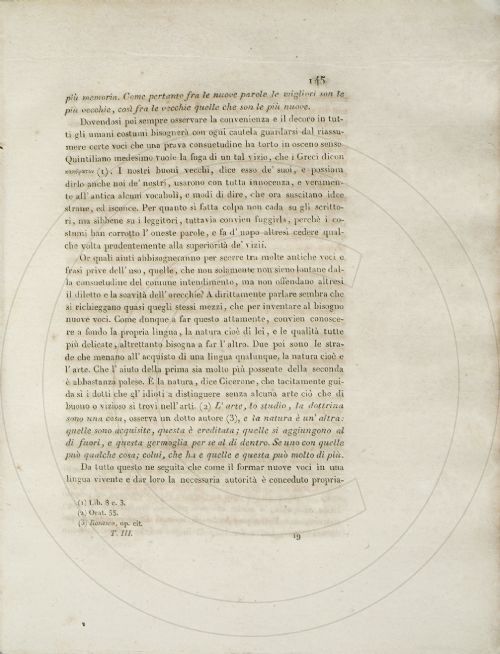 145
più memoria. Come pertanto fra le nuove parole le migliori son le
più vecchie, così fra le vecchie quelle che son le più nuove.
Dovendosi poi sempre osservare la convenienza e il decoro in tut-
ti gli umani costumi bisognerà con ogni cautela guardarsi dal riassu-
mere certe voci che una prava consuetudine ha torto in osceno senso
Quintiliano medesimo vuole la fuga di un tal vizio, che i Greci dicon
(1). I nostri buoni vecchi, dice esso de' suoi, e possiam
dirlo anche noi de' nostri, usarono con tutta innocenza, e veramen-
te all'antica alcuni vocaboli, e modi di dire, che ora suscitano idee
strane, ed isconce. Per quanto sì fatta colpa non cada su gli scritto-
ri, ma sibbene su i leggitori, tuttavia convien fuggirla, perchè i co-
stumi han corrotto l'oneste parole, e fa d'uopo altresì cedere qual-
che volta prudentemente alla superiorità de' vizii.
Or quali aiuti abbisogneranno per scerre tra molte antiche voci e
frasi prive dell'uso, quelle, che non solamente non sieno lontane dal-
la consuetudine del comune intendimento, ma non offendano altresì
il diletto e la soavità dell'orecchie? A dirittamente parlare sembra che
si richieggano quasi quegli stessi mezzi, che per inventare al bisogno
nuove voci. Come dunque a far questo attamente, convien conosce-
re a fondo la propria lingua, la natura cioè di lei, e le qualità tutte
più delicate, altrettanto bisogna a far l'altro. Due poi sono le stra-
de che menano all'acquisto di una lingua qualunque, la natura cioè e
l'arte. Che l'aiuto della prima sia molto più possente della seconda
è abbastanza palese. È la natura, dice Cicerone, che tacitamente gui-
da sì i dotti che gl'idioti a distinguere senza alcuna arte ciò che di
buono o vizioso si trovi nell'arti. (2) L'arte, lo studio, la dottrina
sono una cosa, osserva un dotto autore (3), e la natura è un' altra:
quelle sono acquisite, questa è ereditata; quelle si aggiungono al
di fuori, e questa germoglia per se al di dentro. Se uno con quelle
può qualche cosa; colui, che ha e quelle e questa può molto di più.
Da tutto questo ne seguita che come il formar nuove voci in una
lingua vivente e dar loro la necessaria autorità è conceduto propria-
(1) Lib. 8 c. 3.
(2) Orat. 55.
(3) op. cit.
T. III. 19